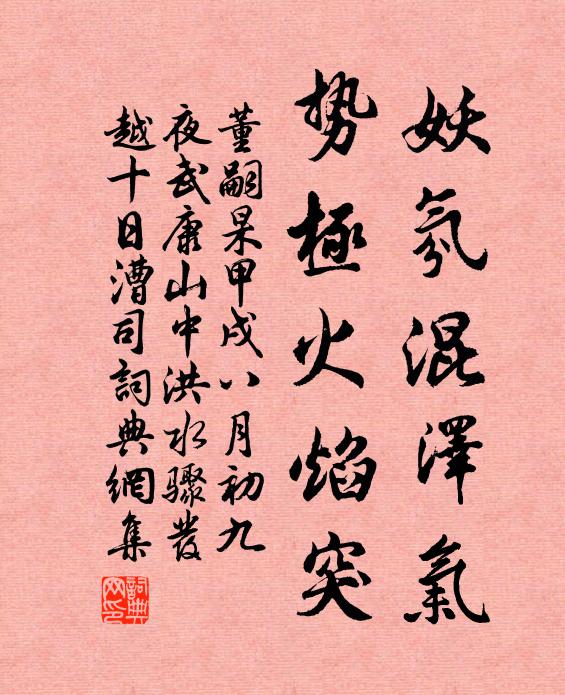 妖氛混澤氣
勢極火焰突
董嗣杲甲戌八月初九
夜武康山中洪水驟發
越十日漕司詞典網集
詞典網印